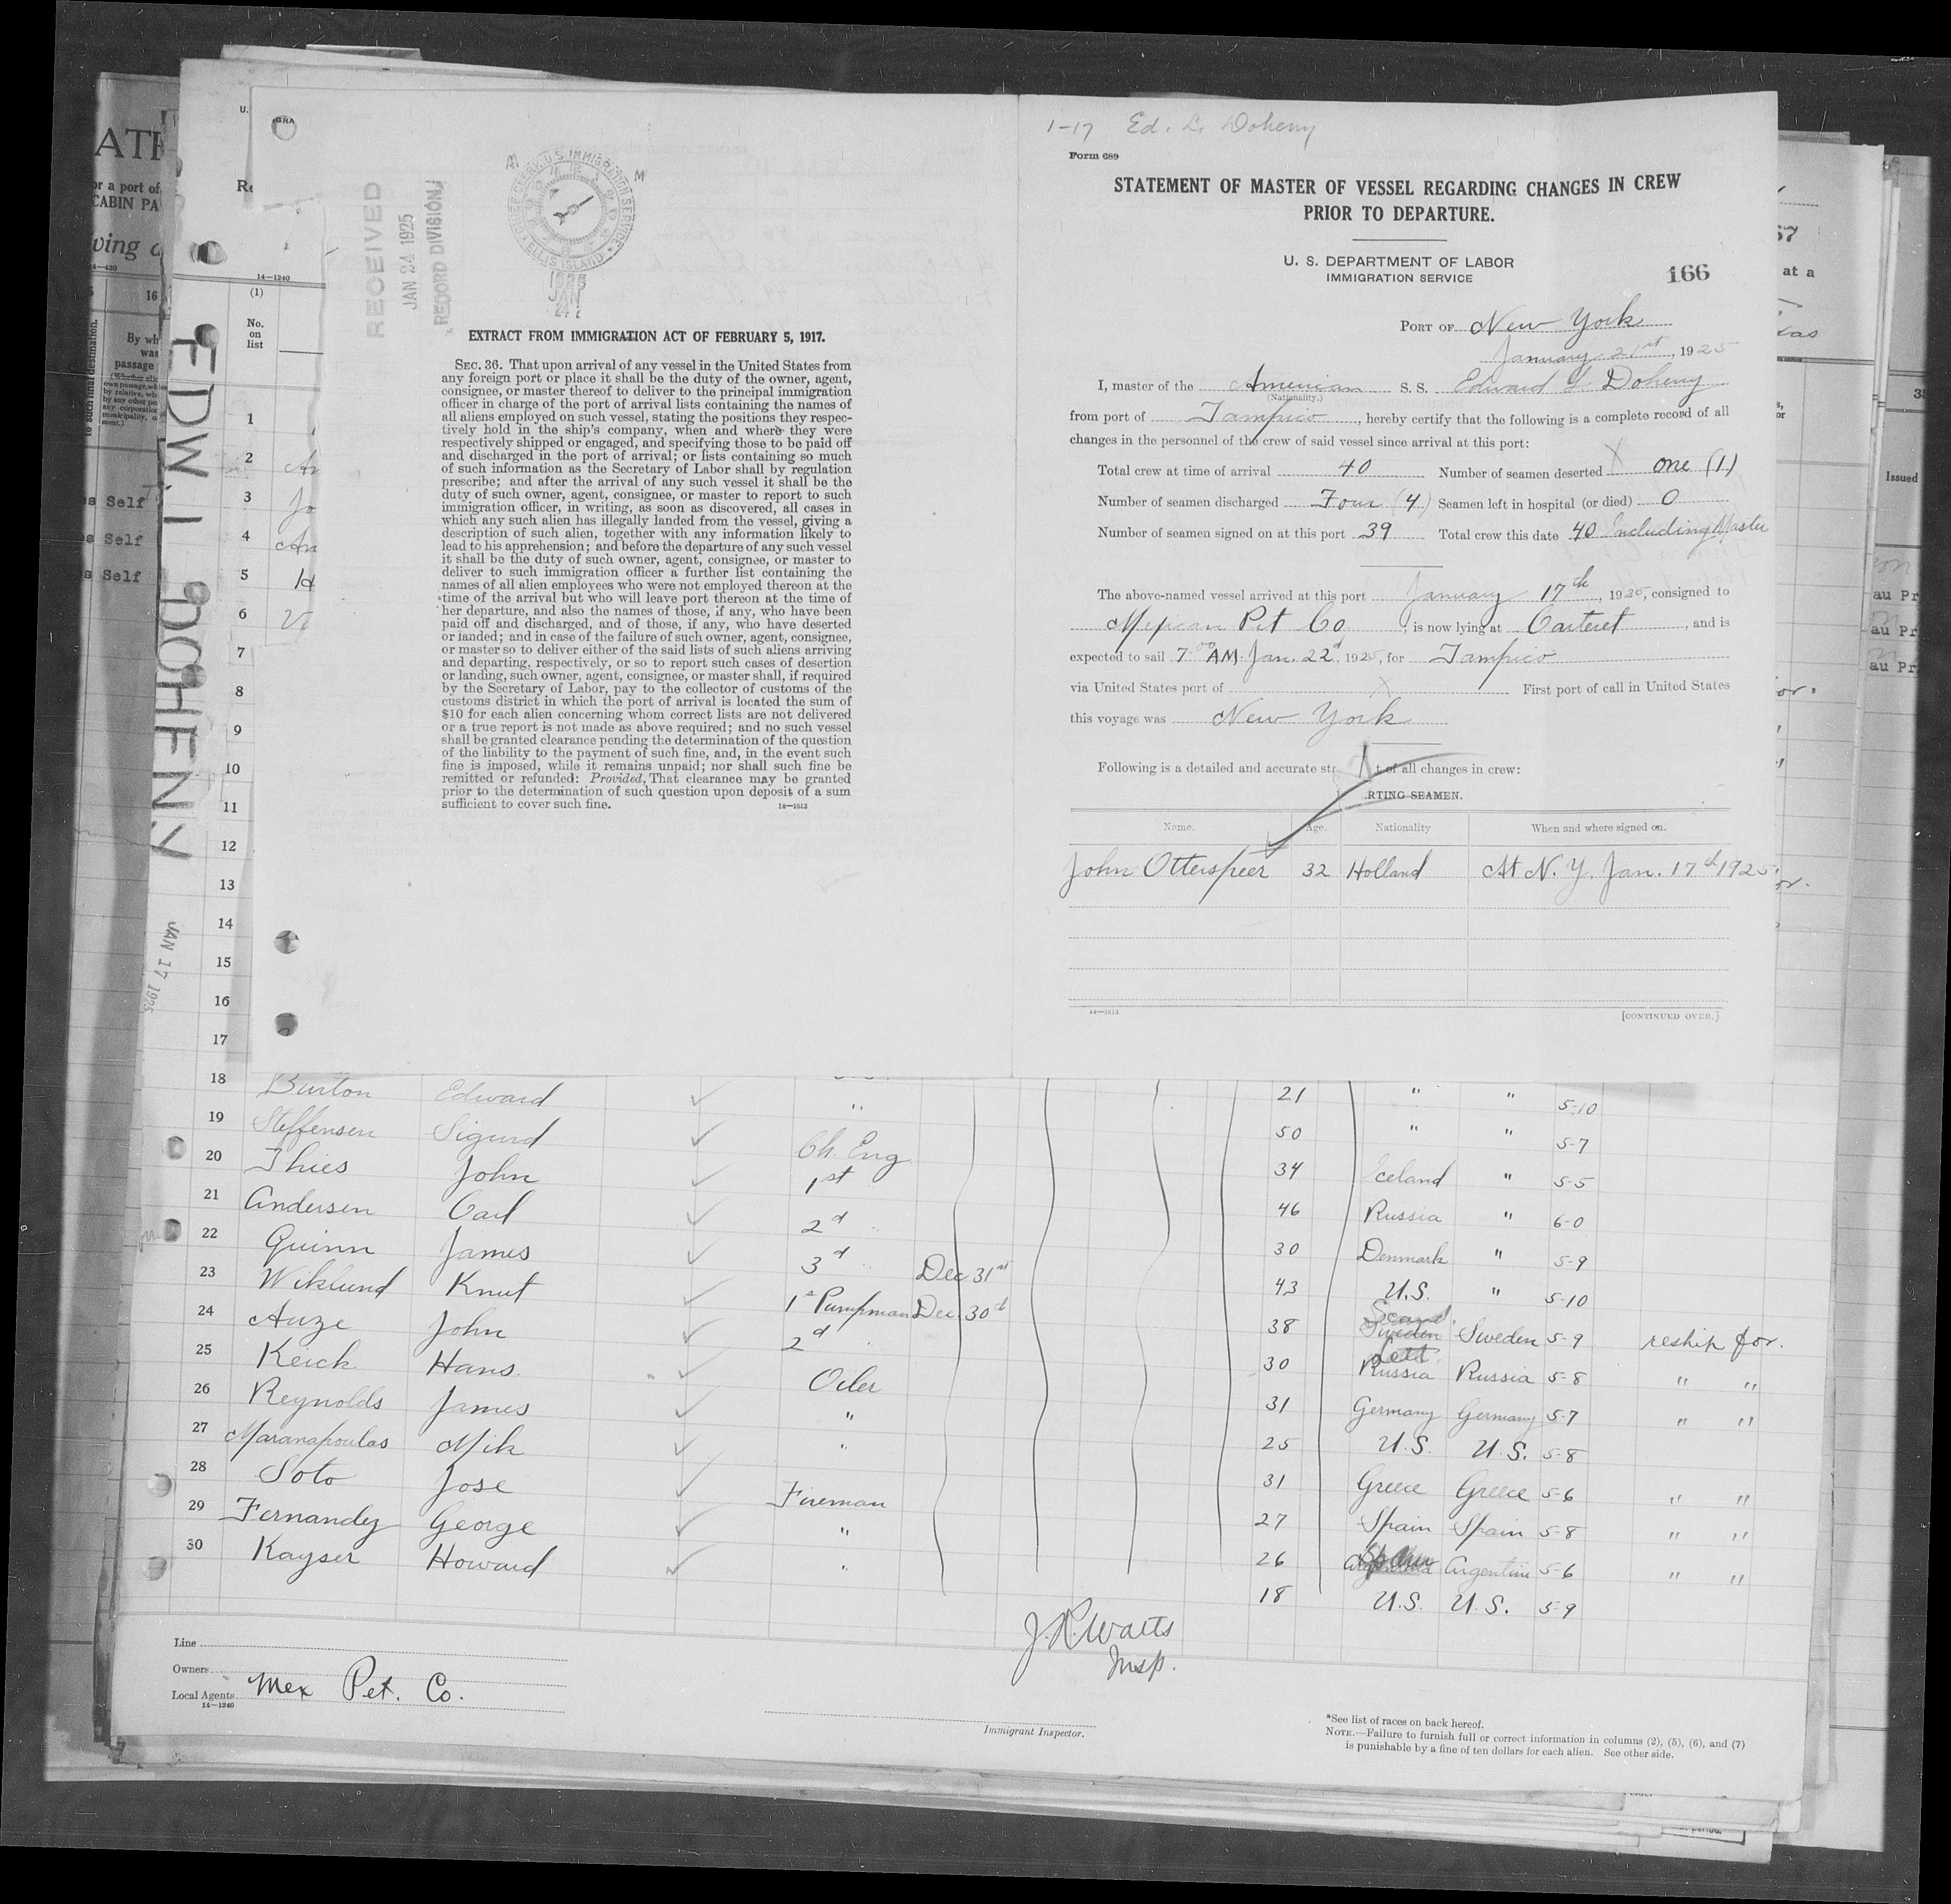 1-17 Ed. L. Doheny
Form 689
STATEMENT OF MASTER OF VESSEL REGARDING CHANGES IN CREW
PRIOR TO DEPARTURE.
U. S. DEPARTMENT OF LABOR
IMMIGRATION SERVICE
166
PORT OF New York
January 21st, 1925
I, master of the American S. S. Edward L Doheny
(Nationality.)
from port of Tampico, hereby certify that the following is a complete record of all
changes in the personnel of the crew of said vessel since arrival at this port:
Total crew at time of arrival 40 Number of seamen deserted one (1)
Number of seamen discharged Four (4) Seamen left in hospital (or died) 0
Number of seamen signed on at this port 39 Total crew this date 40 Including Master
The above-named vessel arrived at this port January 17th, 1925, consigned to
Mexican Pet Co, is now lying at Carteret, and is
expected to sail 7 00 AM Jan. 22d, 1925, for Tampico
via United States port of X First port of call in United States
this voyage was New York
Following is a detailed and accurate st t of all changes in crew:
RTING SEAMEN.
Name. Age. Nationality When and where signed on.
John Otterspeer 32 Holland At N. Y. Jan. 17th 1925.
14—1613 [CONTINUED OVER.]
RECEIVED
JAN 24 1925
RECORD DIVISION
U.S. IMMIGRATION SERVICE
ELLIS ISLAND
1925
JAN
24
EXTRACT FROM IMMIGRATION ACT OF FEBRUARY 5, 1917.
SEC. 36. That upon arrival of any vessel in the United States from
any foreign port or place it shall be the duty of the owner, agent,
consignee, or master thereof to deliver to the principal immigration
officer in charge of the port of arrival lists containing the names of
all aliens employed on such vessel, stating the positions they respec-
tively hold in the ship's company, when and where they were
respectively shipped or engaged, and specifying those to be paid off
and discharged in the port of arrival; or lists containing so much
of such information as the Secretary of Labor shall by regulation
prescribe; and after the arrival of any such vessel it shall be the
duty of such owner, agent, consignee, or master to report to such
immigration officer, in writing, as soon as discovered, all cases in
which any such alien has illegally landed from the vessel, giving a
description of such alien, together with any information likely to
lead to his apprehension; and before the departure of any such vessel
it shall be the duty of such owner, agent, consignee, or master to
deliver to such immigration officer a further list containing the
names of all alien employees who were not employed thereon at the
time of the arrival but who will leave port thereon at the time of
her departure, and also the names of those, if any, who have been
paid off and discharged, and of those, if any, who have deserted
or landed; and in case of the failure of such owner, agent, consignee,
or master so to deliver either of the said lists of such aliens arriving
and departing, respectively, or so to report such cases of desertion
or landing, such owner, agent, consignee, or master shall, if required
by the Secretary of Labor, pay to the collector of customs of the
customs district in which the port of arrival is located the sum of
$10 for each alien concerning whom correct lists are not delivered
or a true report is not made as above required; and no such vessel
shall be granted clearance pending the determination of the question
of the liability to the payment of such fine, and, in the event such
fine is imposed, while it remains unpaid; nor shall such fine be
remitted or refunded: Provided, That clearance may be granted
prior to the determination of such question upon deposit of a sum
sufficient to cover such fine.
14—1613
EDW. L. DOHENY
JAN 17 1925
14—1240
(1)
No.
on
list
1
2
3
4
5
6
7
8
9
10
11
12
13
14
15
16
17
18 Burton Edward " 21 " " 5-10
19 Steffensen Sigurd Ch. Eng 50 " " 5-7
20 Thies John 1st " 34 Iceland " 5-5
21 Andersen Carl 2d " 46 Russia " 6-0
22 Quinn James 3d " Dec 31st 30 Denmark " 5-9
23 Wiklund Knut 1st Pumpman Dec. 30th 43 U.S. " 5-10
24 Auze John 2d " 38 Scand. Sweden Sweden 5-9 reship for.
25 Keick Hans Oiler 30 Lett Russia Russia 5-8 " "
26 Reynolds James " 31 Germany Germany 5-7 " "
27 Maranapoulas Mik " 25 U.S. U.S. 5-8
28 Soto Jose Fireman 31 Greece Greece 5-6 " "
29 Fernandez George " 27 Spain Spain 5-8 " "
30 Kayser Howard " 26 Argentine 5-6 " "
18 U.S. U.S. 5-9
J. R. Watts
Insp.
Line
Owners
Local Agents Mex Pet. Co.
14—1240
Immigrant Inspector.
*See list of races on back hereof.
NOTE.—Failure to furnish full or correct information in columns (2), (5), (6), and (7)
is punishable by a fine of ten dollars for each alien. See other side.